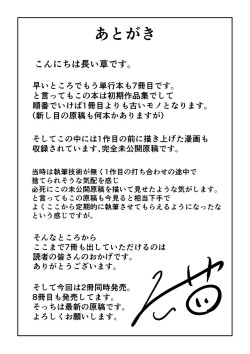 あとがき
こんにちは長い草です。
早いところでもう単行本も7冊目です。
と言ってもこの本は初期作品集でして
順番でいけば1冊目よりも古いモノとなります。
(新し目の原稿も何本かありますが)
そしてこの中には1作目の前に描き上げた漫画も
収録されています、完全未公開原稿です。
当時は執筆技術が無く1作目の打ち合わせの途中で
捨てられそうな気配を感じ
必死にこの未公開原稿を描いて見せたような気がします。
と言ってもこの原稿も今見ると相当下手で
よくここから定期的に執筆させてもらえるようになったな
という感じですが。
そんなところから
ここまで7冊も出していただけるのは
読者の皆さんのおかげです。
ありがとうございます。
そして今回は2冊同時発売。
8冊目も発売してます。
そっちは最新の原稿です。
よろしくお願いします。